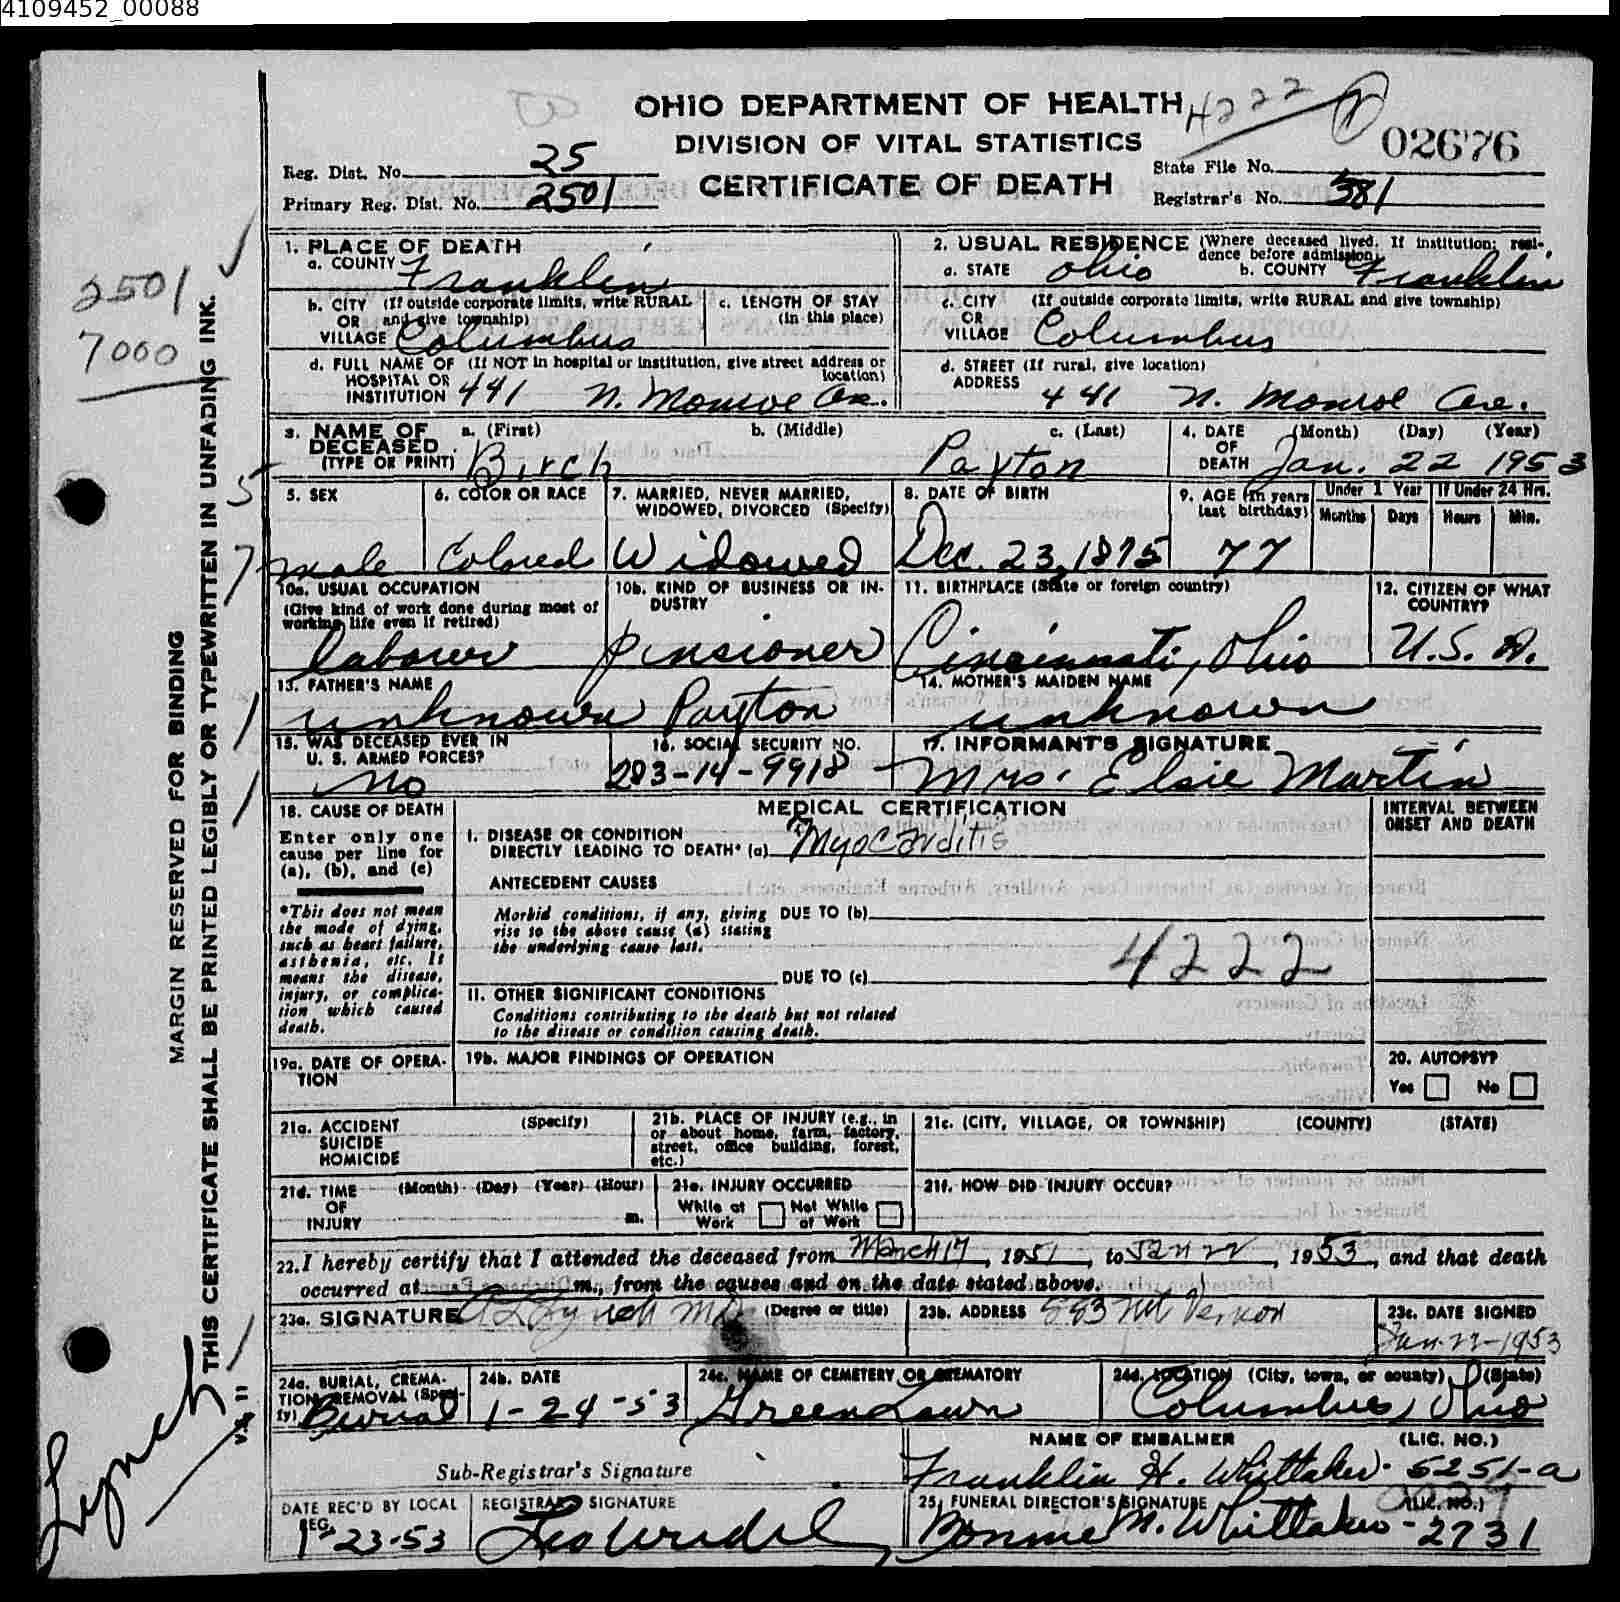 4109452_00088
OHIO DEPARTMENT OF HEALTH 4222
DIVISION OF VITAL STATISTICS
CERTIFICATE OF DEATH
Reg. Dist. No. 25
Primary Reg. Dist. No. 2501
02676
State File No.
Registrar's No. 381
2501
7000
MARGIN RESERVED FOR BINDING
THIS CERTIFICATE SHALL BE PRINTED LEGIBLY OR TYPEWRITTEN IN UNFADING INK.
1. PLACE OF DEATH
a. COUNTY Franklin
b. CITY (If outside corporate limits, write RURAL
OR and give township)
VILLAGE Columbus
c. LENGTH OF STAY
(in this place)
d. FULL NAME OF (If NOT in hospital or institution, give street address or
location)
HOSPITAL OR
INSTITUTION 441 N. Monroe Ave.
2. USUAL RESIDENCE (Where deceased lived. If institution: resi-
dence before admission)
a. STATE Ohio b. COUNTY Franklin
c. CITY (If outside corporate limits, write RURAL and give township)
OR
VILLAGE Columbus
d. STREET (If rural, give location)
ADDRESS 441 N. Monroe Ave.
3. NAME OF a. (First) b. (Middle) c. (Last)
DECEASED
(TYPE OR PRINT) Birch Payton
4. DATE (Month) (Day) (Year)
OF
DEATH Jan. 22 1953
5. SEX
male
6. COLOR OR RACE
Colored
7. MARRIED, NEVER MARRIED,
WIDOWED, DIVORCED (Specify)
Widowed
8. DATE OF BIRTH
Dec. 23, 1875
9. AGE (In years
last birthday)
77
Under 1 Year
Months Days
If Under 24 Hrs.
Hours Min.
10a. USUAL OCCUPATION
(Give kind of work done during most of
working life even if retired)
labourer
10b. KIND OF BUSINESS OR IN-
DUSTRY
pensioner
11. BIRTHPLACE (State or foreign country)
Cincinnati, Ohio
12. CITIZEN OF WHAT
COUNTRY?
U.S. A.
13. FATHER'S NAME
unknown Payton
14. MOTHER'S MAIDEN NAME
unknown
15. WAS DECEASED EVER IN
U. S. ARMED FORCES?
No
16. SOCIAL SECURITY NO.
283-14-9918
17. INFORMANT'S SIGNATURE
Mrs. Elsie Martin
18. CAUSE OF DEATH
Enter only one
cause per line for
(a), (b), and (c)
*This does not mean
the mode of dying,
such as heart failure,
asthenia, etc. It
means the disease,
injury, or complica-
tion which caused
death.
MEDICAL CERTIFICATION
I. DISEASE OR CONDITION
DIRECTLY LEADING TO DEATH* (a) Myocarditis
ANTECEDENT CAUSES
Morbid conditions, if any, giving DUE TO (b)
rise to the above cause (a) stating
the underlying cause last.
4222
DUE TO (c)
II. OTHER SIGNIFICANT CONDITIONS
Conditions contributing to the death but not related
to the disease or condition causing death.
INTERVAL BETWEEN
ONSET AND DEATH
19a. DATE OF OPERA-
TION
19b. MAJOR FINDINGS OF OPERATION
20. AUTOPSY?
Yes No
21a. ACCIDENT (Specify)
SUICIDE
HOMICIDE
21b. PLACE OF INJURY (e.g., in
or about home, farm, factory,
street, office building, forest,
etc.)
21c. (CITY, VILLAGE, OR TOWNSHIP) (COUNTY) (STATE)
21d. TIME (Month) (Day) (Year) (Hour)
OF
INJURY m.
21e. INJURY OCCURRED
While at Not While
Work at Work
21f. HOW DID INJURY OCCUR?
22. I hereby certify that I attended the deceased from March 17, 1951, to Jan 22, 1953, and that death
occurred at m., from the causes and on the date stated above.
23a. SIGNATURE Lynch MD (Degree or title)
23b. ADDRESS 583 Mt Vernon
23c. DATE SIGNED
Jan-22-1953
24a. BURIAL, CREMA-
TION, REMOVAL (Speci-
fy) Burial
24b. DATE
1-24-53
24c. NAME OF CEMETERY OR CREMATORY
Green Lawn
24d. LOCATION (City, town, or county) (State)
Columbus, Ohio
Sub-Registrar's Signature
NAME OF EMBALMER (LIC. NO.)
Franklin H. Whittaker - 5251-a
DATE REC'D BY LOCAL
REG.
1-23-53
REGISTRAR'S SIGNATURE
25. FUNERAL DIRECTOR'S SIGNATURE (LIC. NO.)
Bonnie M. Whittaker - 2731
Lynch